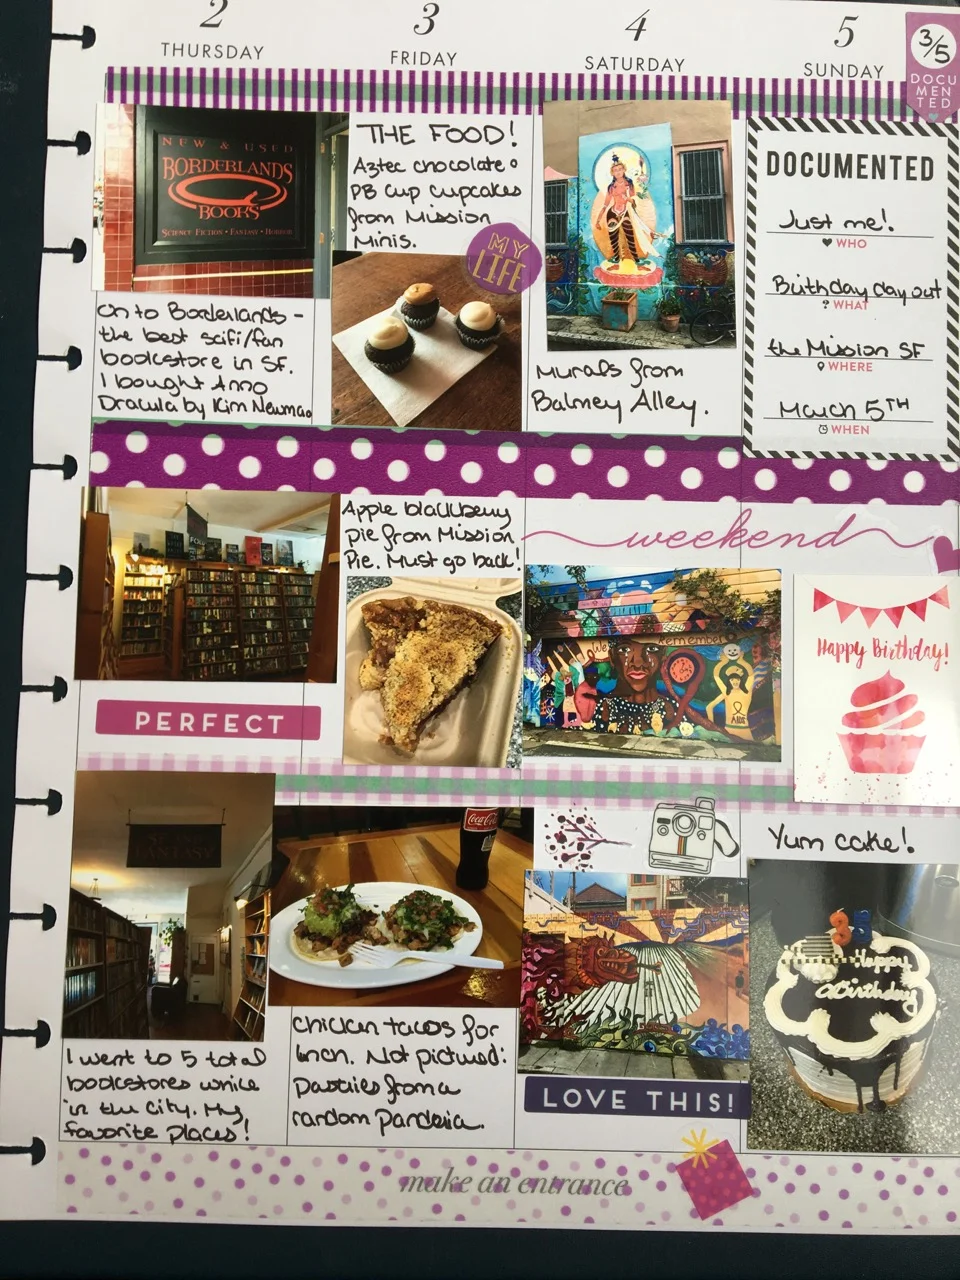 2
THURSDAY
3
FRIDAY
4
SATURDAY
5
SUNDAY
3/5
DOCU
MEN
TED
NEW & USED
BORDERLANDS
BOOKS
SCIENCE FICTION • FANTASY • HORROR
On to Borderlands -
the best scifi/fan
bookstore in SF.
I bought Anno
Dracula by Kim Newman
THE FOOD!
Aztec chocolate &
PB Cup Cupcakes
from Mission
Minis.
MY
LIFE
Murals from
Balmey Alley.
DOCUMENTED
Just me!
WHO
Birthday day out
WHAT
the Mission SF
WHERE
March 5TH
WHEN
Apple blackberry
pie from Mission
Pie. Must go back!
weekend
Remember
We
AIDS
Happy Birthday!
PERFECT
FANTASY
Coca-Cola
I went to 5 total
bookstores while
in the city. My
favorite places!
Chicken tacos for
lunch. Not pictured:
pastries from a
random panderia.
LOVE THIS!
Yum cake!
Happy
Birthday
make an entrance